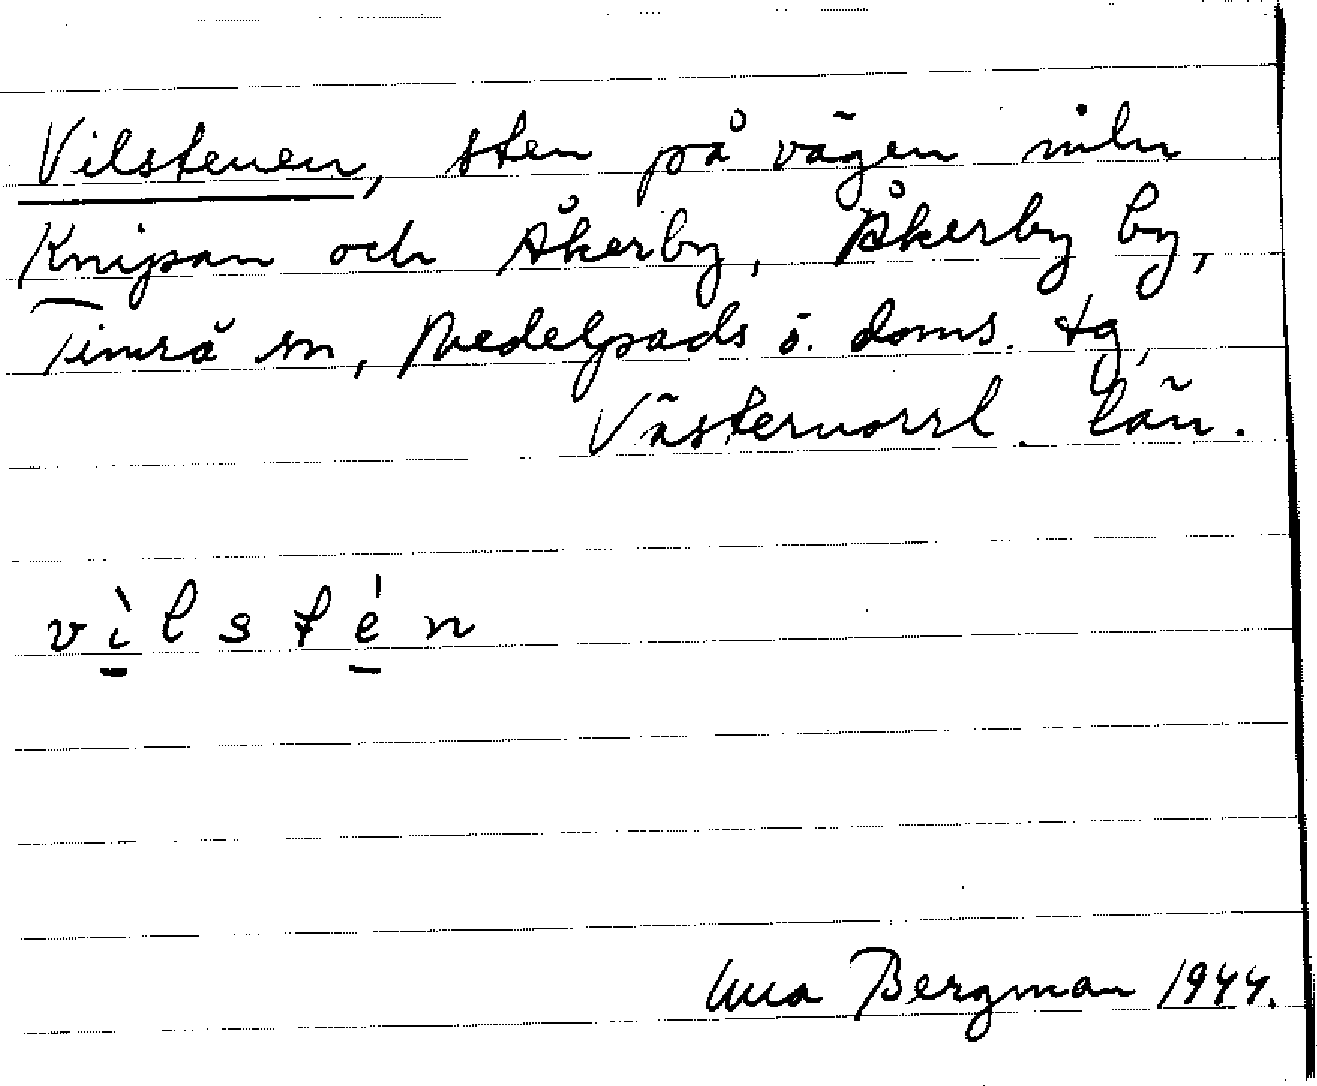 Vilstenen, sten på vägen mln
Knipan och Åkerby, Åkerby by,
Timrå sn, Medelpads ö. doms. tg,
Västernorrl. län.
vìlstén
Bergman 1944.